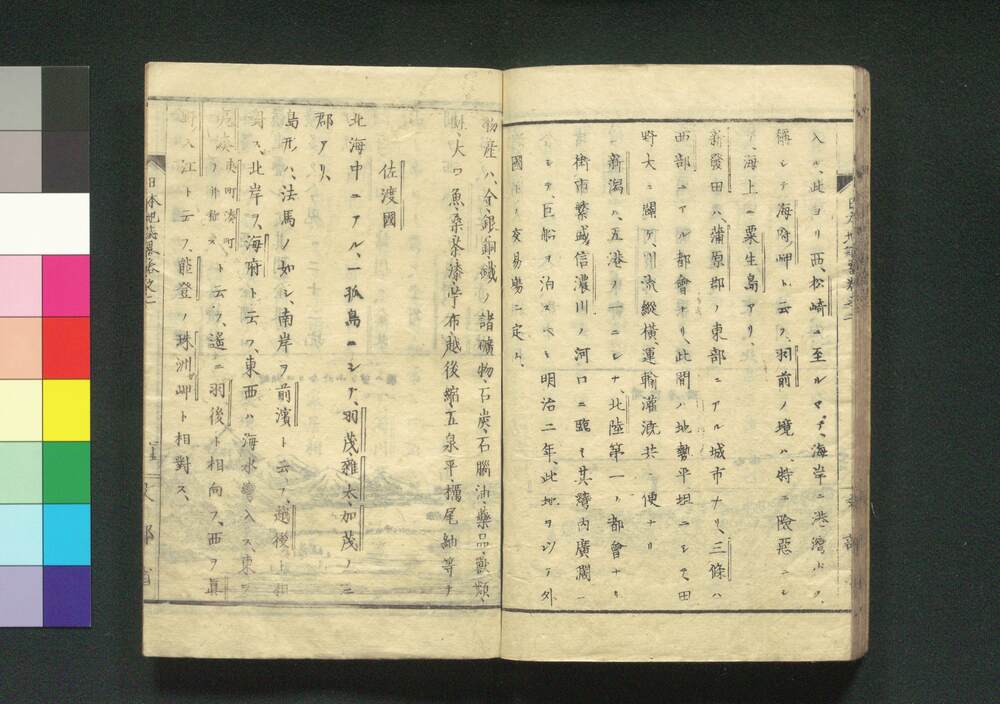 入ル、此ヨリ西、松崎ニ至ルマデ、海岸ニ港灣少ク、
稱シテ海府岬ト云フ、羽前ノ境ハ、特ニ險惡ニシ
海上ニ粟生島アリ、
新發田ハ、蒲原郡ノ東部ニアル城市ナリ、三條ハ
西部ニアル都會ナリ、此間ハ地勢平坦ニシテ田
野大ニ闢ケ、川流縱橫、運輸灌漑共ニ便ナリ
新潟ハ、五港ノ一ニシテ、北陸第一ノ都會ナリ
街市繁盛、信濃川ノ河口ニ臨ミ其灣內廣濶ニ
シテ、巨船ヲ泊スベシ明治二年、此地ヲ以テ外
國
交易場ニ定ム
物產ハ、金、銀、銅、鐵ノ諸礦物、石炭、石腦油、藥品、獸類、
材、大口魚、桑、茶、漆、苧布、越後縮、五泉平、栃尾紬等ナ
佐渡國
北海中ニアル、一孤島ニシテ、羽茂、雜太、加茂ノ三
郡アリ、
島形ハ、法馬ノ如シ、南岸ヲ前濱ト云フ、越後ト相
對ス、北岸ヲ海府ト云フ、東西ハ海水彎入ス、東ヲ
夷町湊町
ト云フ、遙ニ羽後ト相向フ、西ヲ眞
野入江ト云フ、能登ノ珠洲岬ト相對ス、
日本地誌略卷之二
文部省